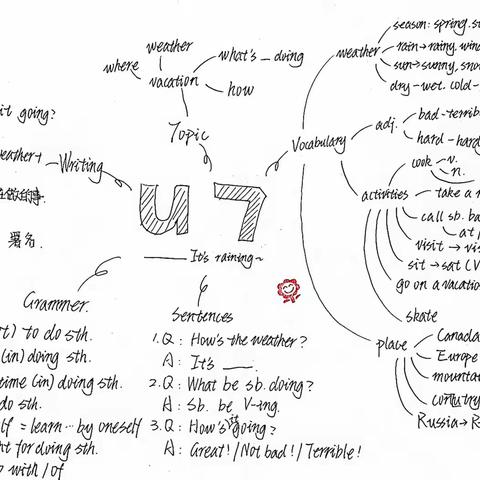 weather
where
vacation
what's _ doing
how
Topic
it going?
weather+
Writing
署名.
U7
It's raining~
Grammer.
to do sth.
(in) doing sth.
time (in) doing sth.
do sth.
= learn… by oneself
for doing sth.
with / of
Sentences
1. Q: How's the weather?
A: It's ___.
2. Q: What be sb. doing?
A: Sb. be V-ing.
3. Q: How's it going?
A: Great! / Not bad! / Terrible!
Vocabulary
weather
season: spring.
rain→rainy,
sun→sunny,
dry-wet. cold-
adj.
bad-
hard-
activities
cook
v.
n.
take a
call sb.
at
visit →
sit → sat
go on a
skate
place
Canada
Europe
country
Russia→